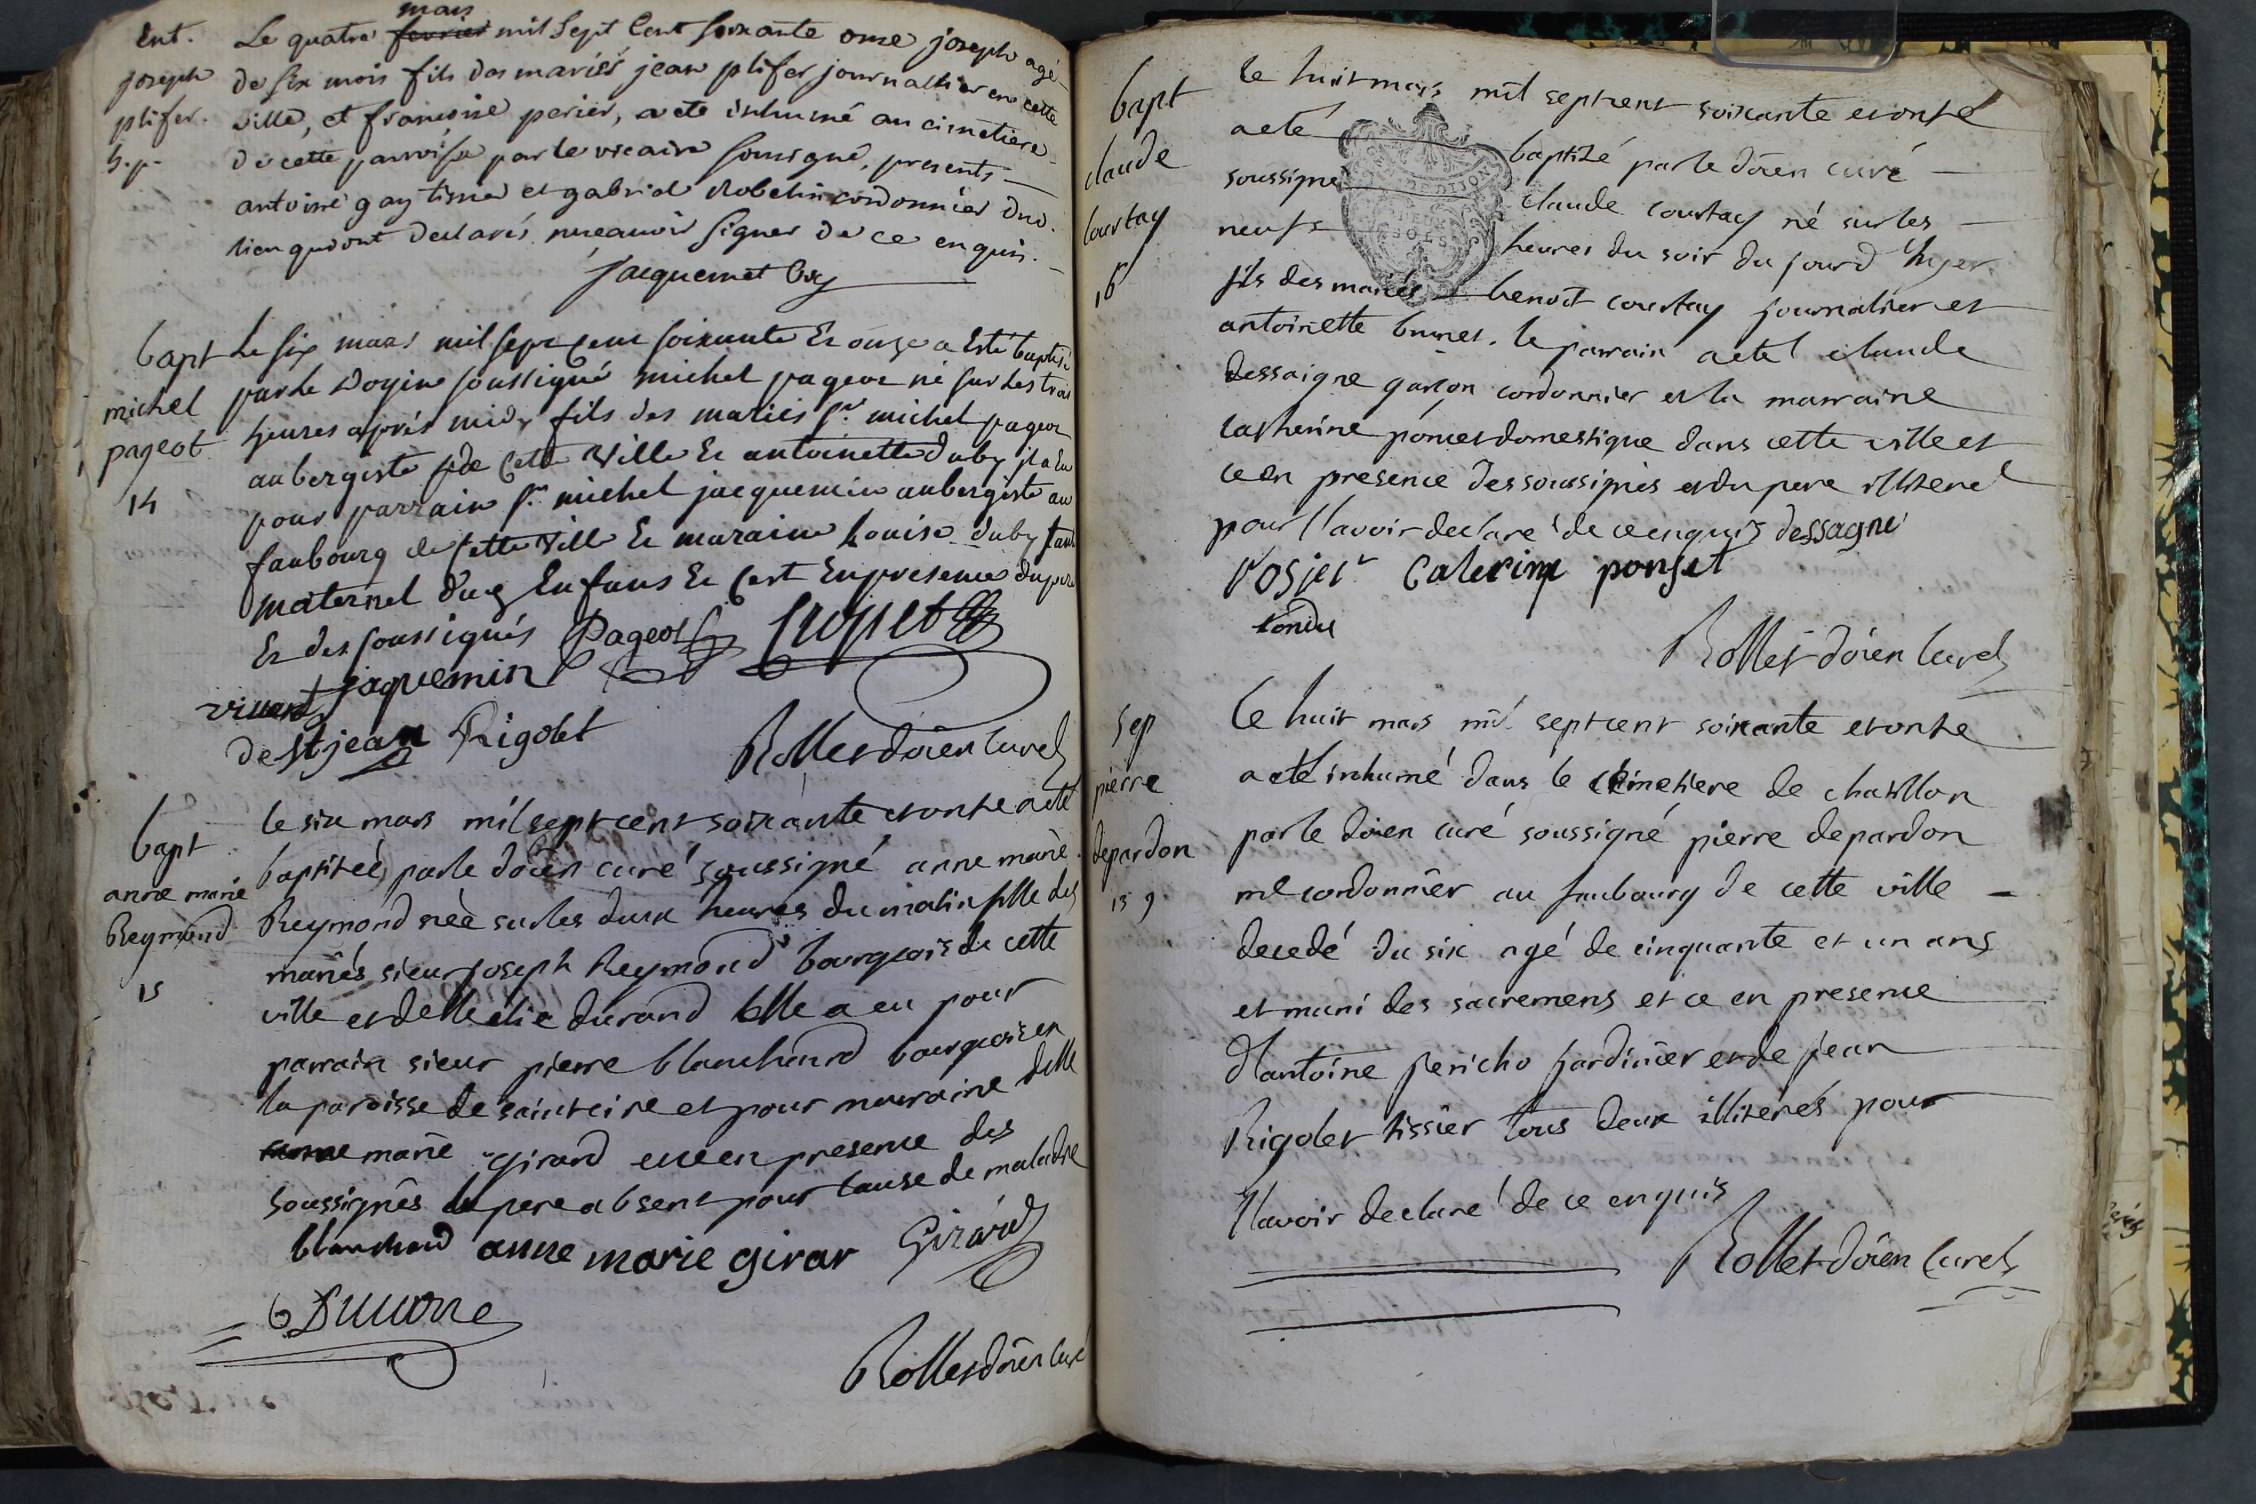 Ent.
joseph
plifer.
h.p.
mars
Le quatre fevrier mil Sept Cent soixante onse joseph agé
de six mois fils des mariés jean plifer journallier en cette
ville, et francoise perier, a eté inhumé au cimetiere
de cette parroisse par le vicaire soussigné, presents
antoine gay tissier et gabriel Robelin cordonnier dud.
lieu qui ont declarés ne scavoir signer de ce enquis.
Jacquemet vic
bapt
michel
pageot
14
Le six mars mil sept cent soixante Et onze a Esté baptisé
par le Doyen soussigné michel pageot né sur les trois
heures après midy fils des mariés sr michel pageot
aubergiste de cette Ville Et antoinette duby il a Eu
pour parrain sr michel jacquemin aubergiste au
faubourg de cette Ville Et maraine Louise duby tante
maternel dud Enfans Et c'est En presence du pere
Et des soussignés Pageot
jaquemin
vincent
de st jean Rigolet
Rollet doien Curé
bapt
anne marie
Reymond
15
le six mars mil sept cent soixante et onse a eté
baptiseé par le doien curé soussigné anne marie
Reymond neè sur les deux heures du matin fille des
mariés sieur joseph Reymond bourgeois de cette
ville et delle elie durand Elle a eu pour
parrain sieur pierre blanchard bourgeois en
la paroisse de saint cire et pour marraine delle
anne marie girard et ce en presence des
soussignés le pere absent pour cause de maladie
blanchard anne marie girar Girard
Rollet doien Curé
bapt
claude
courtay
16
le huit mars mil sept cent soixante et onse
a eté baptisé par le doien curé
soussigné claude courtay né sur les
neuf heures du soir du jour d'hyer
fils des mariés benoit courtay journalier et
antoinette brunet. le parrain a eté claude
dessaigne garçon cordonnier et la marraine
catherine poncet domestique dans cette ville et
ce en presence des soussignés et du pere illiteré
pour l'avoir declaré de ce enquis dessagne
Caterine ponset
tondu
Rollet doien Curé
Sep
pierre
depardon
15 9
Le huit mars mil sept cent soixante et onse
a eté inhumé dans le cimetiere de chatillon
par le doien curé soussigné pierre depardon
me cordonnier au faubourg de cette ville
decedé du six agé de cinquante et un ans
et muni des sacremens et ce en presence
d'antoine jericho jardinier et de jean
Rigolet tissier tous deux illiterés pour
l'avoir declaré de ce enquis
Rollet doien Curé